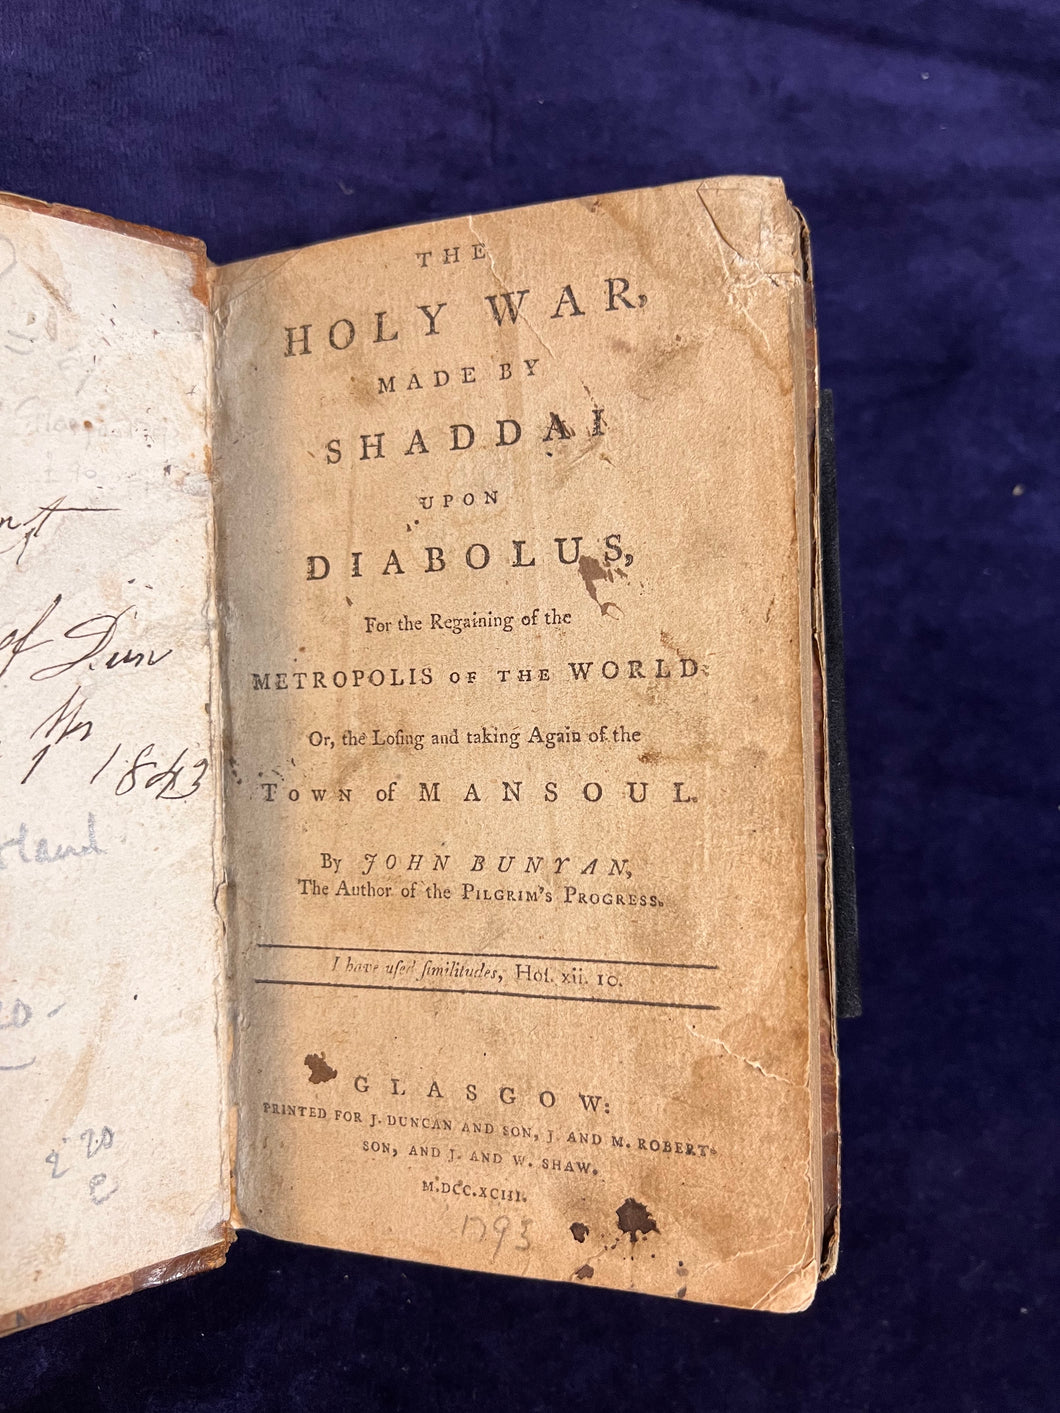 of Dun
1 1843
THE
HOLY WAR,
MADE BY
SHADDAI
UPON
DIABOLUS,
For the Regaining of the
METROPOLIS OF THE WORLD:
Or, the Loſing and taking Again of the
TOWN of MANSOUL.
By JOHN BUNYAN,
The Author of the PILGRIM'S PROGRESS.
I have uſed ſimilitudes, Hoſ. xii. 10.
GLASGOW:
PRINTED FOR J. DUNCAN AND SON, J. AND M. ROBERT-
SON, AND J. AND W. SHAW.
M.DCC.XCIII.
1793